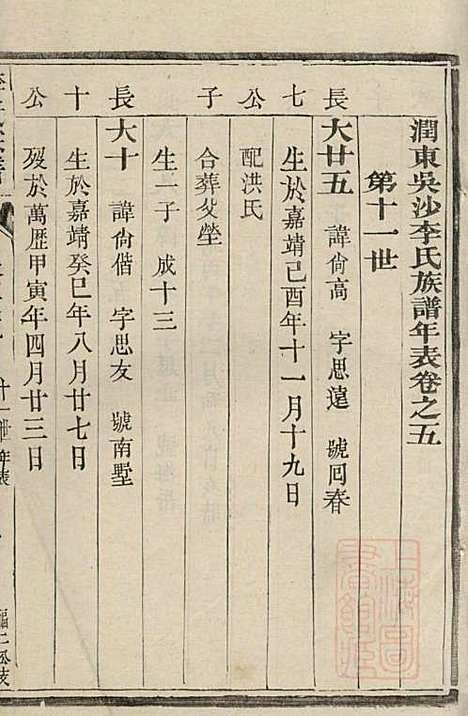 潤東吳沙李氏族譜年表卷之五
第十一世
長七公子
大廿五 諱尙高 字思遠 號回春
生於嘉靖己酉年十一月十九日
配洪氏
合葬父塋
生一子 成十三
長十公
大十 諱尙偕 字思友 號南墅
生於嘉靖癸巳年八月廿七日
歿於萬歷甲寅年四月廿三日
上海圖書館藏